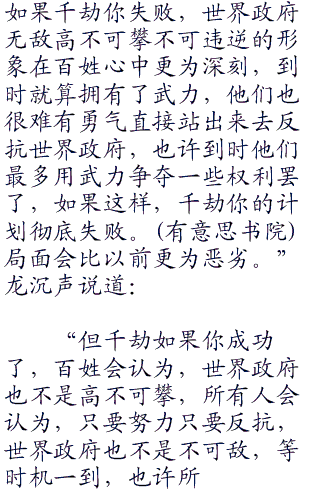 如果千劫你失败，世界政府
无敌高不可攀不可违逆的形
象在百姓心中更为深刻，到
时就算拥有了武力，他们也
很难有勇气直接站出来去反
抗世界政府，也许到时他们
最多用武力争夺一些权利罢
了，如果这样，千劫你的计
划彻底失败。(有意思书院)
局面会比以前更为恶劣。”
龙沉声说道：
“但千劫如果你成功
了，百姓会认为，世界政府
也不是高不可攀，所有人会
认为，只要努力只要反抗，
世界政府也不是不可敌，等
时机一到，也许所